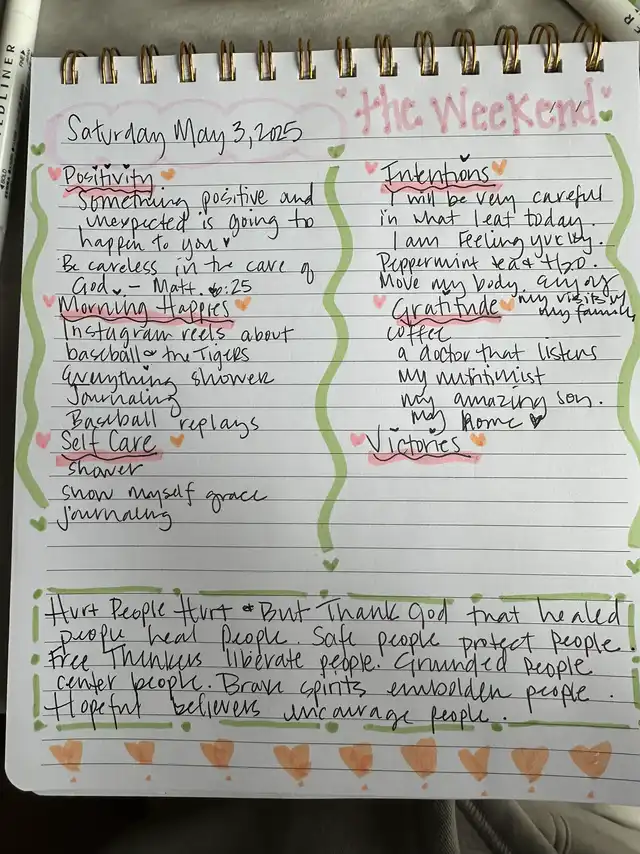 the Weekend
Saturday May 3, 2025
Positivity
Something positive and
unexpected is going to
happen to you
Be careless in the care of
God. - Matt. 6:25
Morning Happies
Instagram reels about
baseball & the Tigers
Everything shower
Journaling
Baseball replays
Self Care
shower
show myself grace
journaling
Intentions
I will be very careful
in what I eat today.
I am Feeling yucky.
Peppermint tea & H2O.
Move my body.
Gratitude
my family
coffee
a doctor that listens
my nutritionist
my amazing son.
my home
Victories
Hurt People Hurt & But Thank God that healed
people heal people. Safe people protect people.
Free Thinkers liberate people. Grounded people
center people. Brave spirits embolden people.
Hopeful believers encourage people.